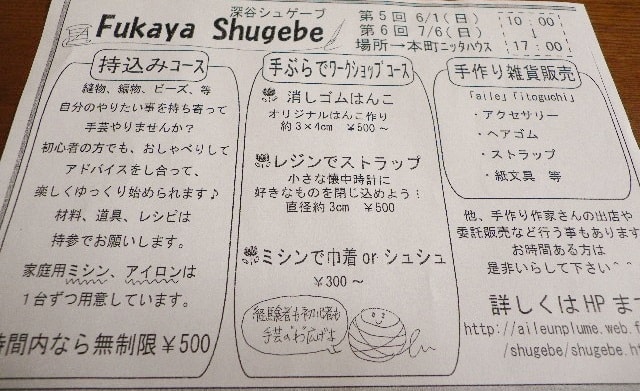 深谷シュゲーブ
Fukaya Shugebe
第5回 6/1(日)
第6回 7/6(日)
場所→本町ニッタハウス
10:00
↓
17:00
持込みコース
縫物、編物、ビーズ、等
自分のやりたい事を持ち寄って
手芸やりませんか？
初心者の方でも、おしゃべりして
アドバイスをし合って、
楽しくゆっくり始められます♪
材料、道具、レシピは
持参でお願いします。
家庭用ミシン、アイロンは
1台ずつ用意しています。
時間内なら無制限￥500
手ぶらでワークショップコース
消しゴムはんこ
オリジナルはんこ作り
約3×4cm ￥500～
レジンでストラップ
小さな懐中時計に
好きなものを閉じ込めよう！
直径約3cm ￥500
ミシンで巾着 or シュシュ
￥300～
経験者も初心者も
手芸の"わ"広げよ
手作り雑貨販売
「aile」「itoguchi」
・アクセサリー
・ヘアゴム
・ストラップ
・紙文具 等
他、手作り作家さんの出店や
委託販売など行う事もあります
お時間ある方は
是非いらして下さい^^
詳しくはHPま
http://aileunplume.web.f
/shugebe/shugebe.ht